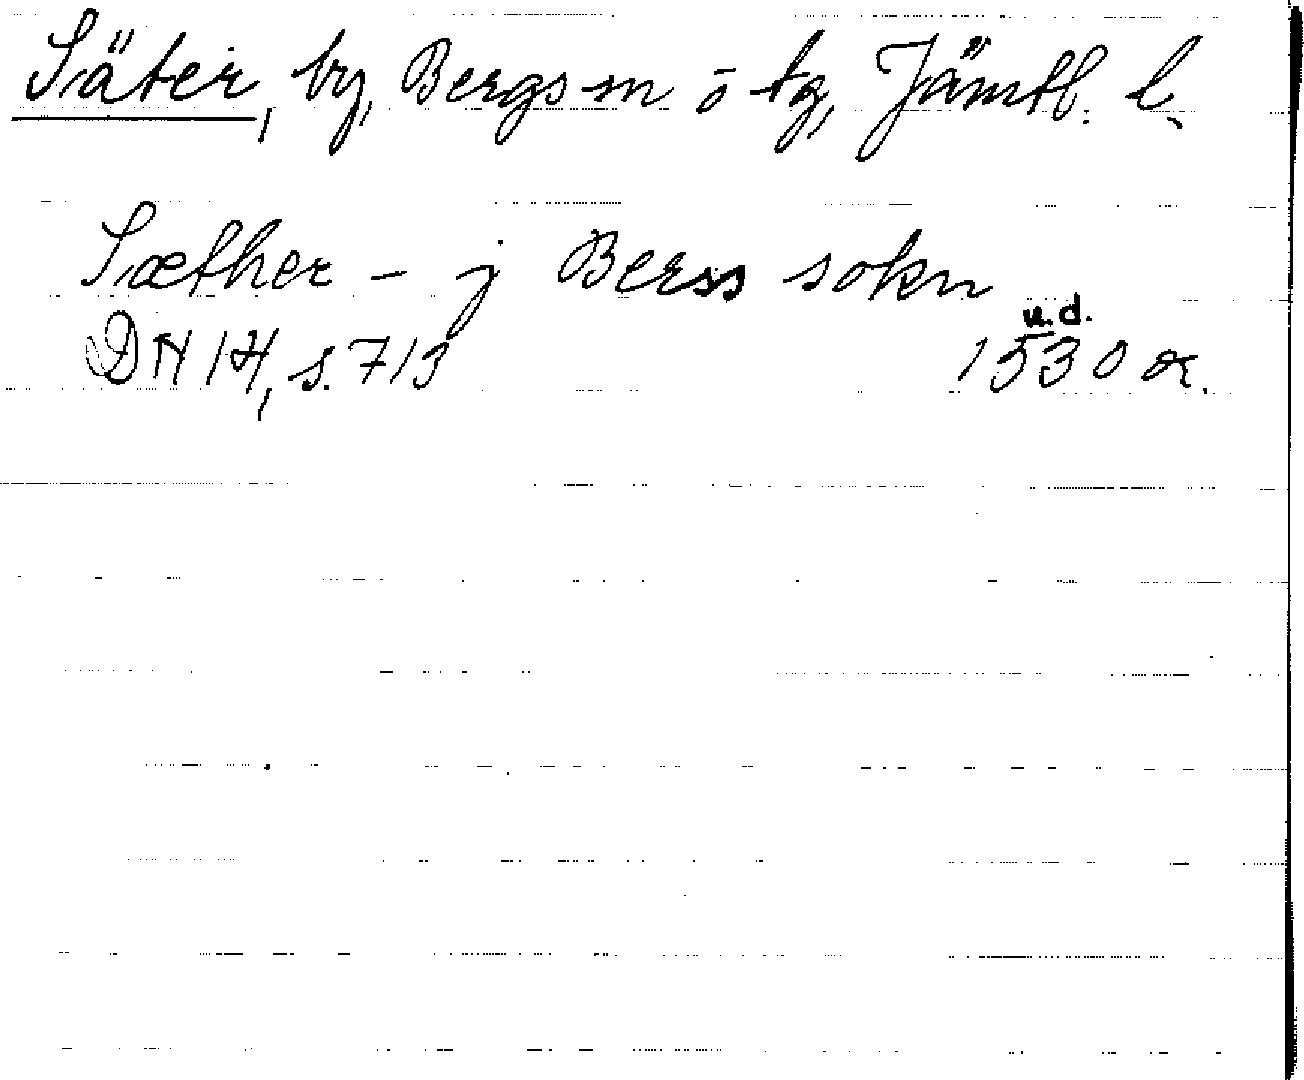 Säter, by, Bergs sn o tg, Jämtl. l.
Sæther – j Berss sokn
u.d.
DN 14, s. 713 1530 or.